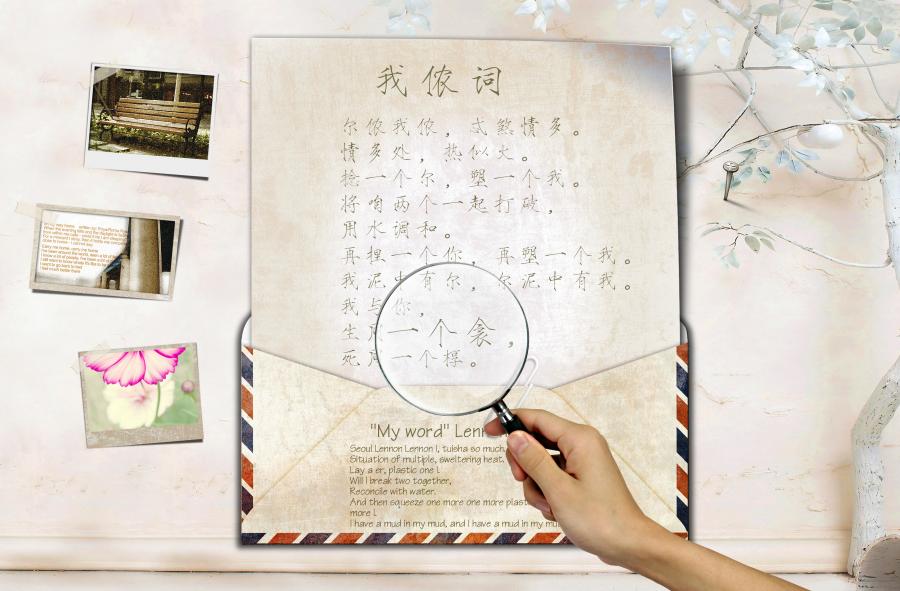 我侬词
尔侬我侬，忒煞情多。
情多处，热似火。
捻一个尔，塑一个我。
将咱两个一起打破，
用水调和。
再捏一个你，再塑一个我。
我泥中有尔，尔泥中有我。
我与你，
生 一个衾，
死 一个椁。
"My word"
Seoul Lennon Lennon I, tuisha so much.
Situation of multiple, sweltering heat.
Lay a er, plastic one I.
Will I break two together,
Reconcile with water.
And then squeeze one more one more
more I.
I have a mud in my mud, and I have a mud in my